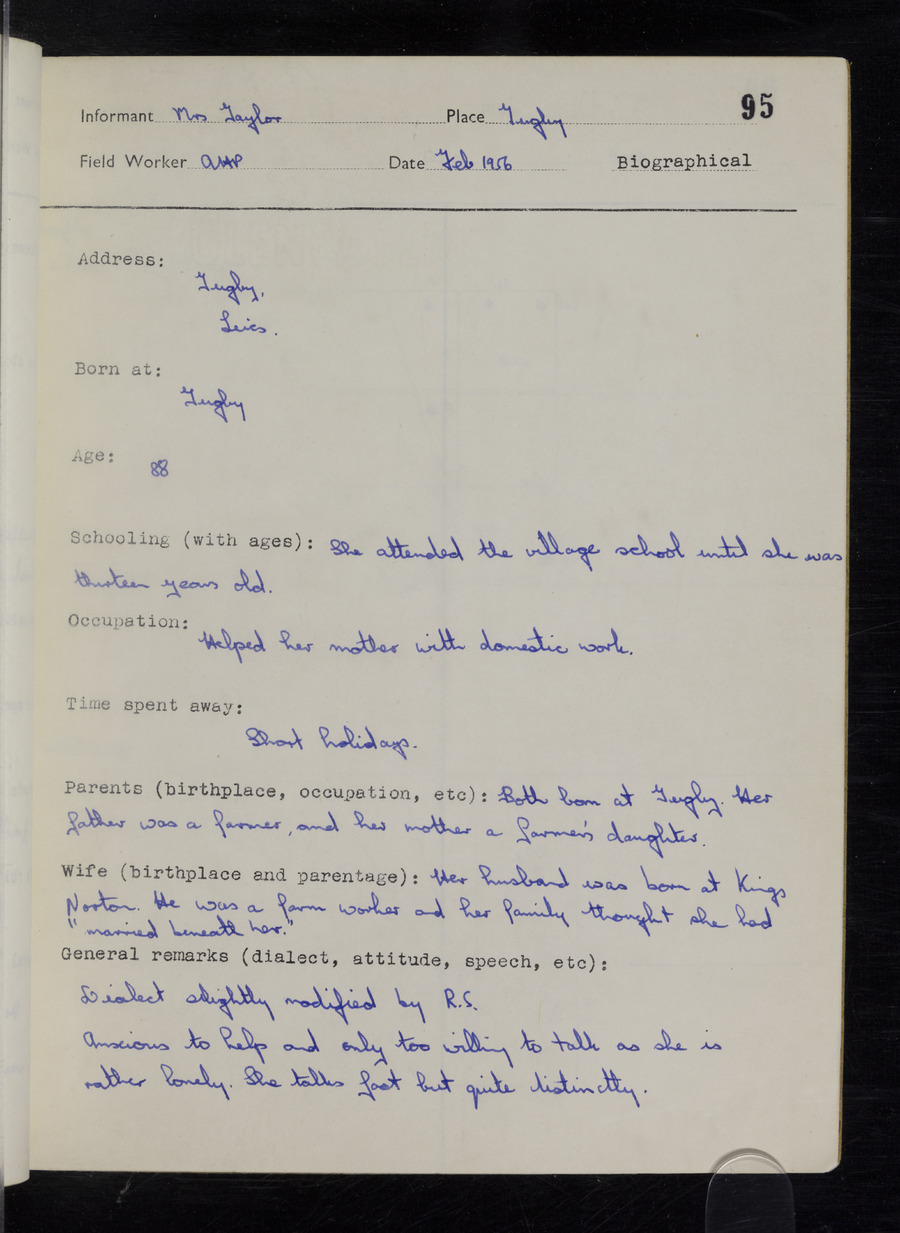 95
Informant Mrs Taylor Place Tugby
Field Worker Date Feb 1956 Biographical
Address:
Tugby,
Leics.
Born at:
Tugby
Age: 88
Schooling (with ages): She attended the village school until she was
thirteen years old.
Occupation:
Helped her mother with domestic work.
Time spent away:
Short holidays.
Parents (birthplace, occupation, etc): Both born at Tugby. Her
father was a farmer, and her mother a farmer's daughter.
Wife (birthplace and parentage): Her husband was born at Kings
Norton. He was a farm worker and her family thought she had
"married beneath her."
General remarks (dialect, attitude, speech, etc):
Dialect slightly modified by R.S.
Anxious to help and only too willing to talk as she is
rather lonely. She talks fast but quite distinctly.